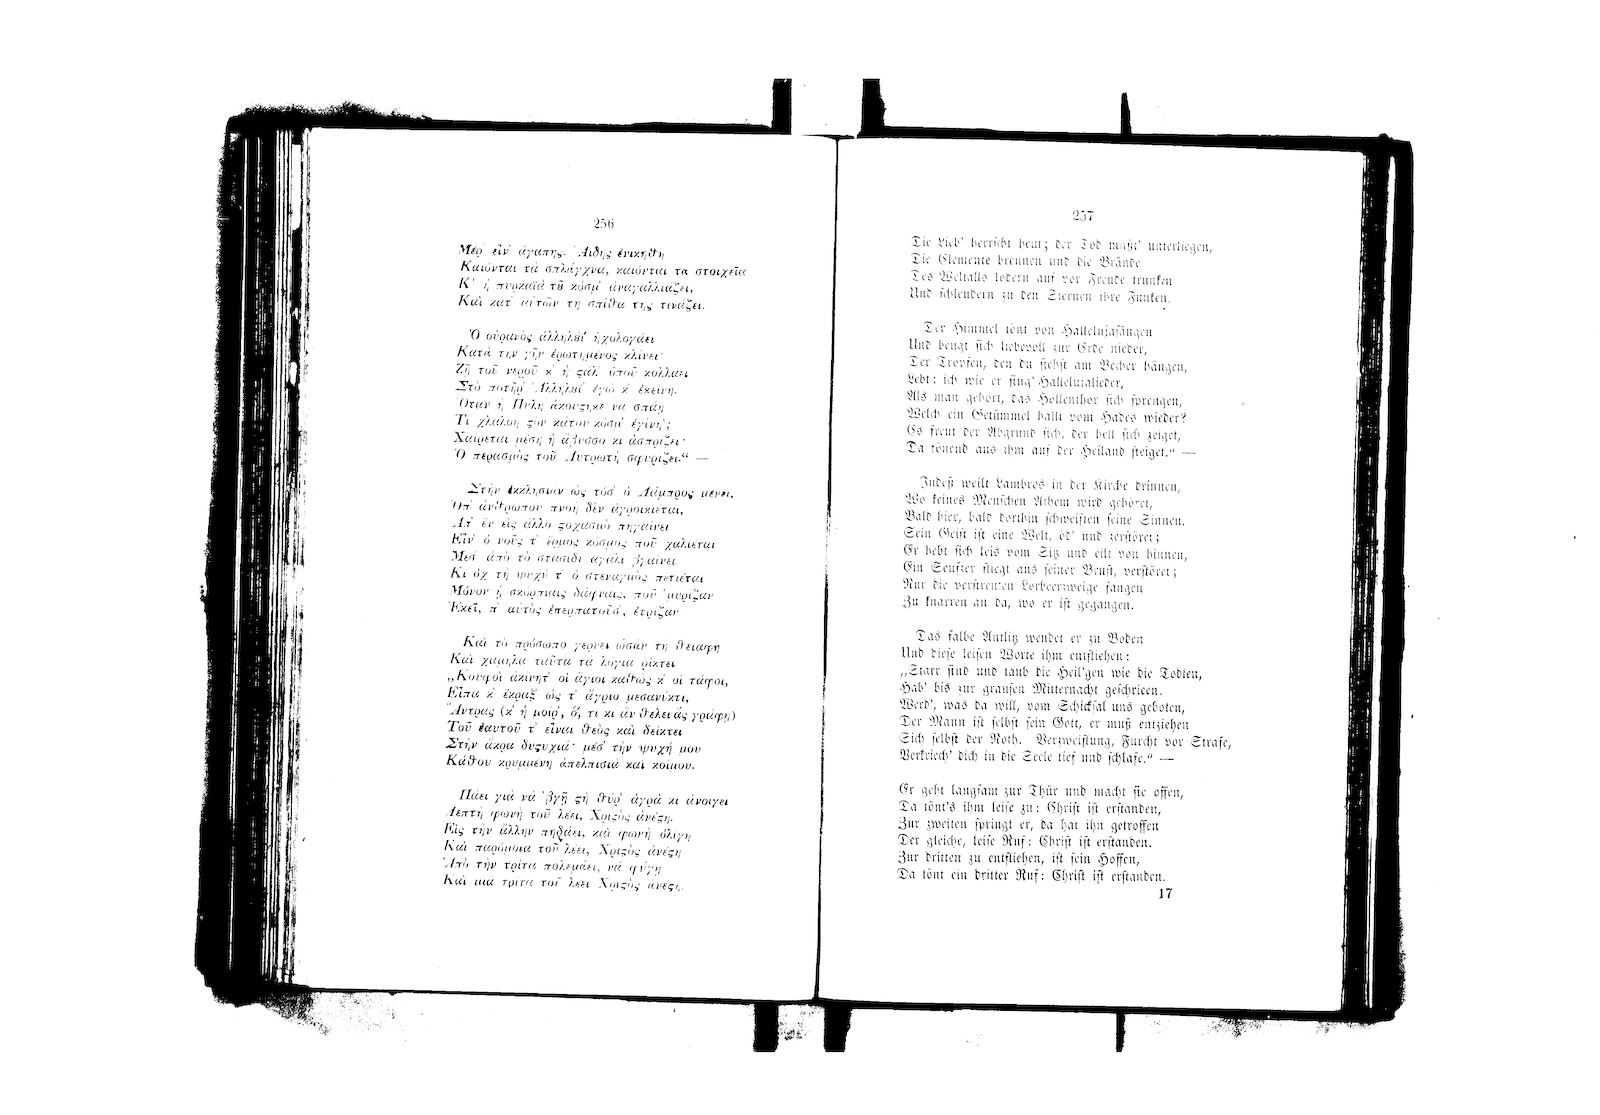 256
Μέρ' εἶν' ἀγάπης. Ἅιδης ἐνικήθη
Καιόνται τὰ σπλάγχνα, καιόνται τα στοιχεῖα
Κ' ἡ πυρκαϊὰ τȣ͂ κόσμ' ἀναγαλλιάζει,
Καὶ κατ' αὐτῶν τὴ σπίθα της τινάζει.
Ὁ οὐρανὸς ἀλληλȣϊ' ἠχολογάει
Κατὰ τὴν γῆν ἐρωτημένος κλίνει·
Ζῆ τοῦ νεροῦ κ' ἡ ϛάλ' ὁποῦ κολλάει
Στὸ ποτῆρ' Ἀλληλȣϊ' ἐγὼ κ' ἐκείνη.
Ὅταν ἡ Πύλη ἀκούϛηκε νὰ σπάῃ
Τί χλαλοὴ ϛὸν κάτου κόσμ' ἐγίνη';
Χαίρεται μέση ἡ ἄβυσσο κι ἀσπρίζει·
Ὁ περασμὸς τοῦ Λυτρωτῆ σφυρίζει.“ —
Στὴν ἐκκλησίαν ὡς τόσ' ὁ Λάμπρος μένει,
Ὁπ' ἀνθρώπου πνοὴ δὲν ἀγροικιέται,
Ἀπ' ἓν εἰς ἄλλο ϛοχασμὸ πηγαίνει
Εἶν' ὁ νοῦς τ' ἔρμος κόσμος ποῦ χαλιέται
Μέσ' ἀπὸ τὸ στασίδι ἀγάλι βγαίνει
Κι ὀχ τὴ ψυχή τ' ὁ στεναγμὸς πετιέται
Μόνον ᾑ σκόρπιαις δάφναις, ποῦ 'μυρίζαν
Ἐκεῖ, π' αὐτὸς ἐπερπατοῦσ', ἐτρίζαν
Καὶ τὸ πρόσωπο γέρνει ὡσὰν τη θειάφη
Καὶ χαμηλὰ ταῦτα τὰ λόγια ρίκτει
„Κουφοὶ ἀκίνητ' οἱ ἅγιοι καθὼς κ' οἱ τάφοι,
Εἶπα κ' ἔκραξ' ὡς τ' ἄγριο μεσανύκτι,
Ἄντρας (κ' ἡ μοῖρ', ὅ, τι κι ἂν θέλει ἂς γράφῃ)
Τοῦ ἑαυτοῦ τ' εἶναι θεὸς καὶ δείκτει
Στὴν ἄκρα δυϛυχιά· μέσ' τὴν ψυχή μου
Κάθου κρυμμένη ἀπελπισιὰ καὶ κοίμου.
Πάει γιὰ νὰ 'βγῇ ϛὴ θύρ' ἀγρὰ κι ἀνοίγει
Λεπτὴ φωνὴ τοῦ λέει, Χριϛὸς ἀνέϛη.
Εἰς τὴν ἄλλην πηδάει, καὶ φωνὴ ὀλίγη
Καὶ παρόμοια τοῦ λέει, Χριϛὸς ἀνέϛη
Ἀπὸ τὴν τρίτα πολεμάει, νὰ φύγῃ
Καὶ μιὰ τρίτα τοῦ λέει Χριϛὸς ἀνέϛη.
257
Die Lieb' herrscht heut; der Tod mußt' unterliegen,
Die Elemente brennen und die Brände
Des Weltalls lodern auf vor Freude trunken
Und schleudern zu den Sternen ihre Funken.
Der Himmel tönt von Hallelujasängen
Und beugt sich liebevoll zur Erde nieder,
Der Tropfen, den du siehst am Becher hängen,
Lebt; ich wie er sing' Hallelujalieder,
Als man gehört, das Höllenthor sich sprengen,
Welch ein Getümmel hallt vom Hades wieder?
Es freut der Abgrund sich, der hell sich zeiget,
Da tönend aus ihm auf der Heiland steiget.“ —
Indeß weilt Lambros in der Kirche drinnen,
Wo keines Menschen Athem wird gehöret,
Bald hier, bald dorthin schweiften seine Sinnen.
Sein Geist ist eine Welt, öd' und zerstöret;
Er hebt sich leis vom Sitz und eilt von hinnen,
Ein Seufzer stiegt aus seiner Brust, verstöret;
Nur die verstreuten Lorbeerzweige fangen
Zu knarren an da, wo er ist gegangen.
Das falbe Antlitz wendet er zu Boden
Und diese leisen Worte ihm entfliehen:
„Starr sind und taub die Heil'gen wie die Todten,
Hab' bis zur grausen Mitternacht geschrieen.
Werd', was da will, vom Schicksal uns geboten,
Der Mann ist selbst sein Gott, er muß entziehen
Sich selbst der Noth. Verzweiflung, Furcht vor Strafe,
Verkriech' dich in die Seele tief und schlafe.“ —
Er geht langsam zur Thür und macht sie offen,
Da tönt's ihm leise zu: Christ ist erstanden,
Zur zweiten springt er, da hat ihn getroffen
Der gleiche, leise Ruf: Christ ist erstanden.
Zur dritten zu entfliehen, ist sein Hoffen,
Da tönt ein dritter Ruf: Christ ist erstanden.
17